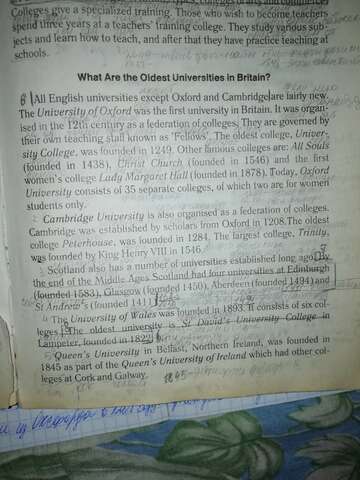 Colleges give a specialized training. Those who wish to become teachers
spend three years at a teachers' training college. They study various sub-
jects and learn how to teach, and after that they have practice teaching at
schools.
What Are the Oldest Universities in Britain?
All English universities except Oxford and Cambridge are fairly new.
The University of Oxford was the first university in Britain. It was organ-
ised in the 12th century as a federation of colleges. They are governed by
their own teaching staff known as 'Fellows'. The oldest college, Univer-
sity College, was founded in 1249. Other famous colleges are: All Souls
(founded in 1438), Christ Church (founded in 1546) and the first
women's college Lady Margaret Hall (founded in 1878). Today, Oxford
University consists of 35 separate colleges, of which two are for women
students only.
Cambridge University is also organised as a federation of colleges.
Cambridge was established by scholars from Oxford in 1208. The oldest
college Peterhouse, was founded in 1284. The largest college, Trinity,
was founded by King Henry VIII in 1546.
Scotland also has a number of universities established long ago. By
the end of the Middle Ages Scotland had four universities at Edinburgh
(founded 1583), Glasgow (founded 1450), Aberdeen (founded 1494) and
St Andrew's (founded 1411)
The University of Wales was founded in 1893. It consists of six col-
leges. The oldest university is St David's University College in
Lampeter, founded in 1822.
Queen's University in Belfast, Northern Ireland, was founded in
1845 as part of the Queen's University of Ireland which had other col-
leges at Cork and Galway.
1845